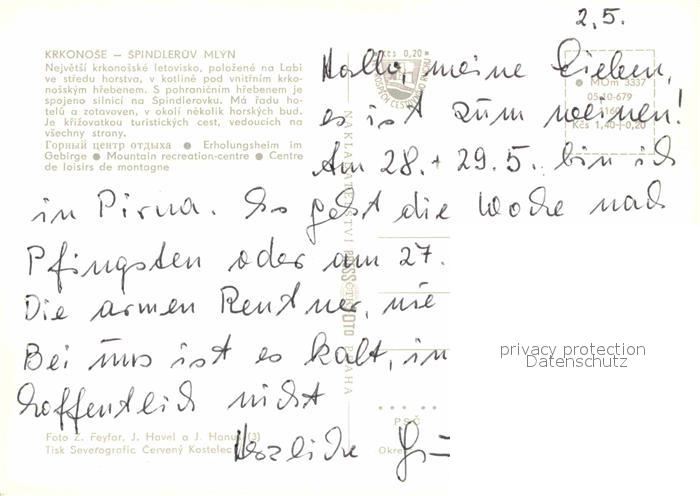 2.5.
KRKONOŠE — ŠPINDLERŮV MLÝN
Největší krkonošské letovisko, položené na Labi
ve středu horstva, v kotlině pod vnitřním krko-
nošským hřebenem. S pohraničním hřebenem je
spojeno silnicí na Špindlerovku. Má řadu ho-
telů a zotavoven, v okolí několik horských bud.
Je křižovatkou turistických cest, vedoucích na
všechny strany.
Горный центр отдыха ● Erholungsheim im
Gebirge ● Mountain recreation-centre ● Centre
de loisirs de montagne
Kčs 0,20
MOm 3337
05-10-679
Kčs 1,40+0,20
Hallo, meine Lieben,
es ist zum weinen!
Am 28. + 29.5. bin ich
in Pirna. So geht die Woche nach
Pfingsten oder am 27.
Die armen Rentner, nie
Bei uns ist es kalt, in
hoffentlich nicht
Herzliche Grü
NAKLADATELSTVÍ PRESSFOTO PRAHA
privacy protection
Datenschutz
PSČ
Okre
Foto Z. Feyfar, J. Havel a J. Hanuš (3)
Tisk Severografie Červený Kostelec